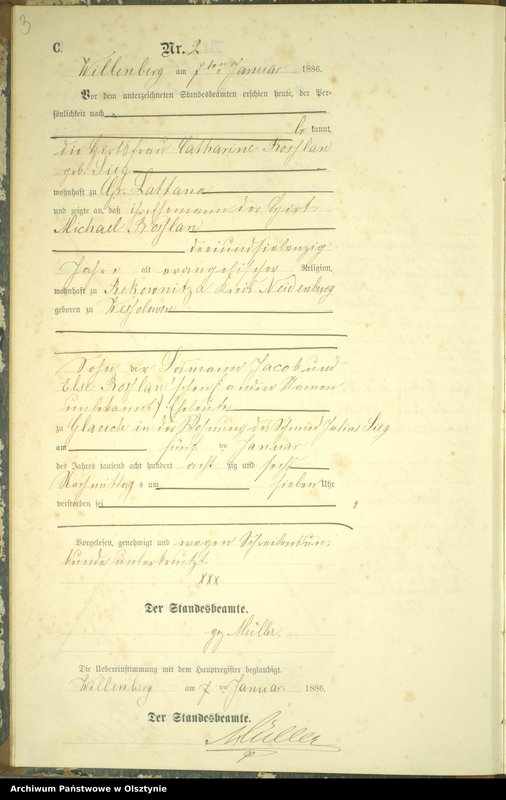 3
C. Nr. 2
Willenberg am 7ten Januar 1886.
Vor dem unterzeichneten Standesbeamten erschien heute, der Per-
sönlichkeit nach
be kannt,
die Hirtsfrau Catharine
geb. Sieg
wohnhaft zu Gr. Lattana
und zeigte an, daß ihr Ehemann der Hirt
Michael
dreiundsiebenzig
Jahre alt evangelischer Religion,
wohnhaft zu Rekownitza Kreis Neidenburg
geboren zu
Sohn der Losmann Jacob und
Else
unbekannt) Eheleute
zu Glauch in der Wohnung des Schmied Julius Sieg
am fünf ten Januar
des Jahres tausend acht hundert acht zig und sechs
Nachmittag s um sieben Uhr
verstorben sei
Vorgelesen, genehmigt und wegen Schreibensun-
kunde unterkreuzt.
XXX
Der Standesbeamte.
gez Müller
Die Uebereinstimmung mit dem Hauptregister beglaubigt.
Willenberg am 7 ten Januar 1886.
Der Standesbeamte.
Müller
Archiwum Państwowe w Olsztynie